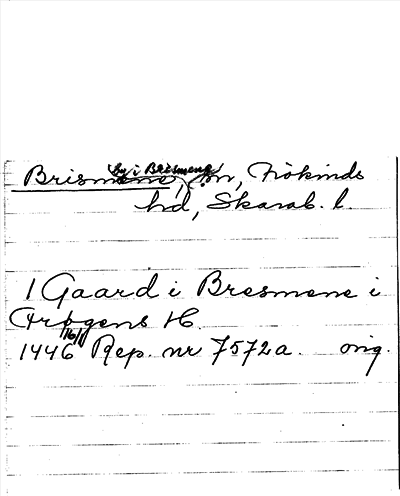 by i Bresmene
Brismene, sn, Frökinds
hd, Skarab. l.
1 Gaard i Bresmene i
Frøgens H.
16/1
1446 Rep. nr 7572a. orig.